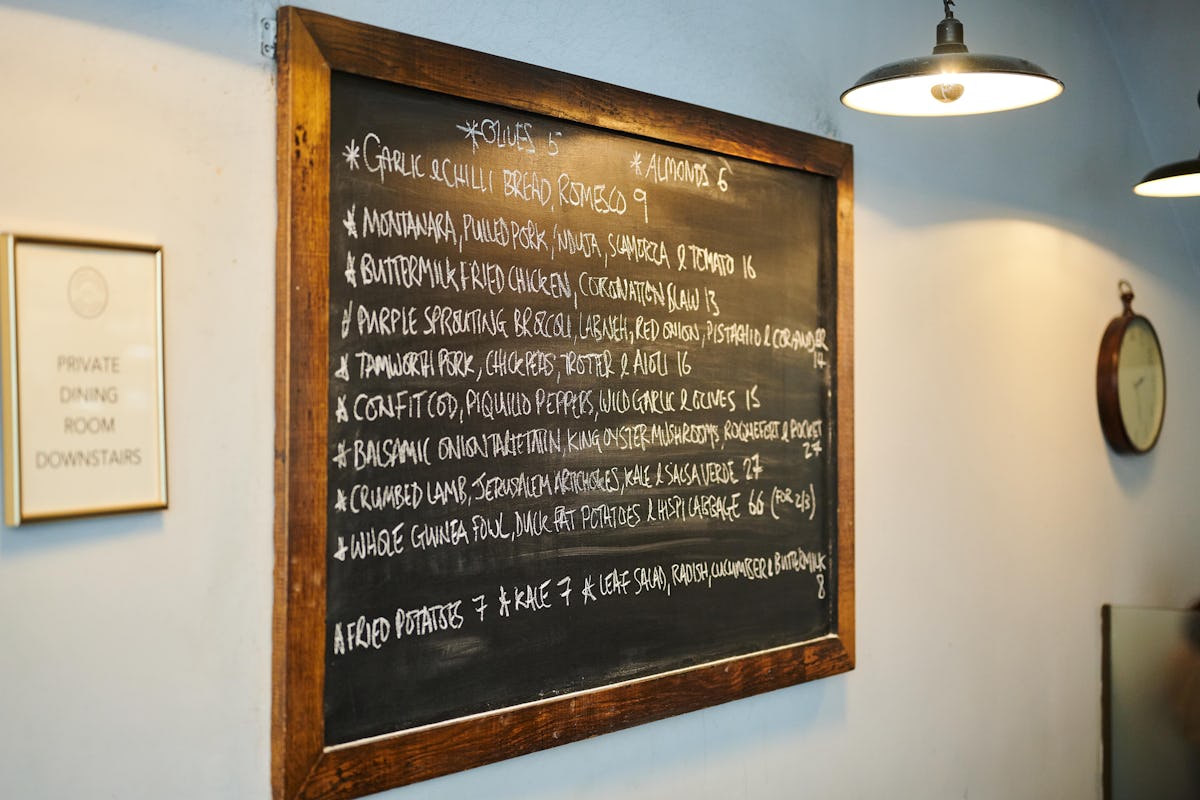 PRIVATE
DINING
ROOM
DOWNSTAIRS
*OLIVES 5 *ALMONDS 6
*GARLIC & CHILLI BREAD, ROMESCO 9
*MONTANARA, PULLED PORK, 'NDUJA, SCAMORZA & TOMATO 16
*BUTTERMILK FRIED CHICKEN, CORONATION SLAW 13
*PURPLE SPROUTING BROCOLI, LABNEH, RED ONION, PISTACHIO & CORIANDER
14
*TAMWORTH PORK, CHICKPEAS, TROTTER & AIOLI 16
*CONFIT COD, PIQUILLO PEPPERS, WILD GARLIC & OLIVES 15
*BALSAMIC ONION TARTE TATIN, KING OYSTER MUSHROOMS, ROQUEFORT & ROCKET
27
*CRUMBED LAMB, JERUSALEM ARTICHOKES, KALE & SALSA VERDE 27
*WHOLE GUINEA FOWL, DUCK FAT POTATOES & HISPI CABBAGE 66 (FOR 2/3)
*FRIED POTATOES 7 *KALE 7 *LEAF SALAD, RADISH, CUCUMBER & BUTTERMILK
8